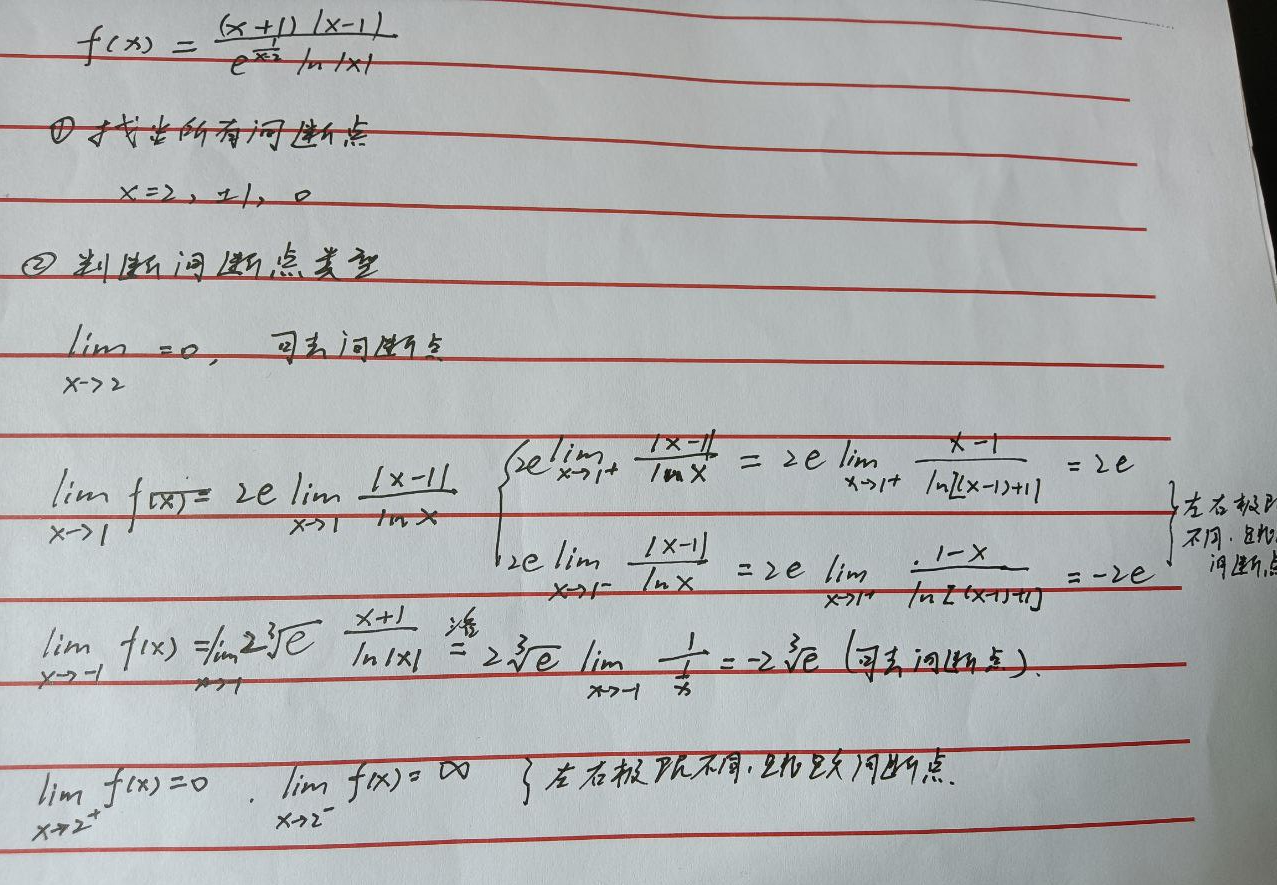 f(x) = \frac{(x+1)|x-1|}{e^{\frac{1}{x-2}} ln|x|}
① 找出所有间断点
x=2, ±1, 0
② 判断间断点类型
lim_{x→2} =0, 可去间断点
lim_{x→1} f(x) = 2e lim_{x→1} \frac{|x-1|}{ln x} { 2e lim_{x→1^+} \frac{|x-1|}{ln x} = 2e lim_{x→1^+} \frac{x-1}{ln[(x-1)+1]} = 2e
2e lim_{x→1^-} \frac{|x-1|}{ln x} = 2e lim_{x→1^+} \frac{1-x}{ln[(x-1)+1]} = -2e } 左右极限
不同.
间断点
lim_{x→-1} f(x) = lim_{x→-1} 2\sqrt[3]{e} \frac{x+1}{ln|x|} 洛= 2\sqrt[3]{e} lim_{x→-1} \frac{1}{\frac{1}{x}} = -2\sqrt[3]{e} (可去间断点).
lim_{x→2^+} f(x) = 0 . lim_{x→2^-} f(x) = ∞ } 左右极限不同. 间断点.